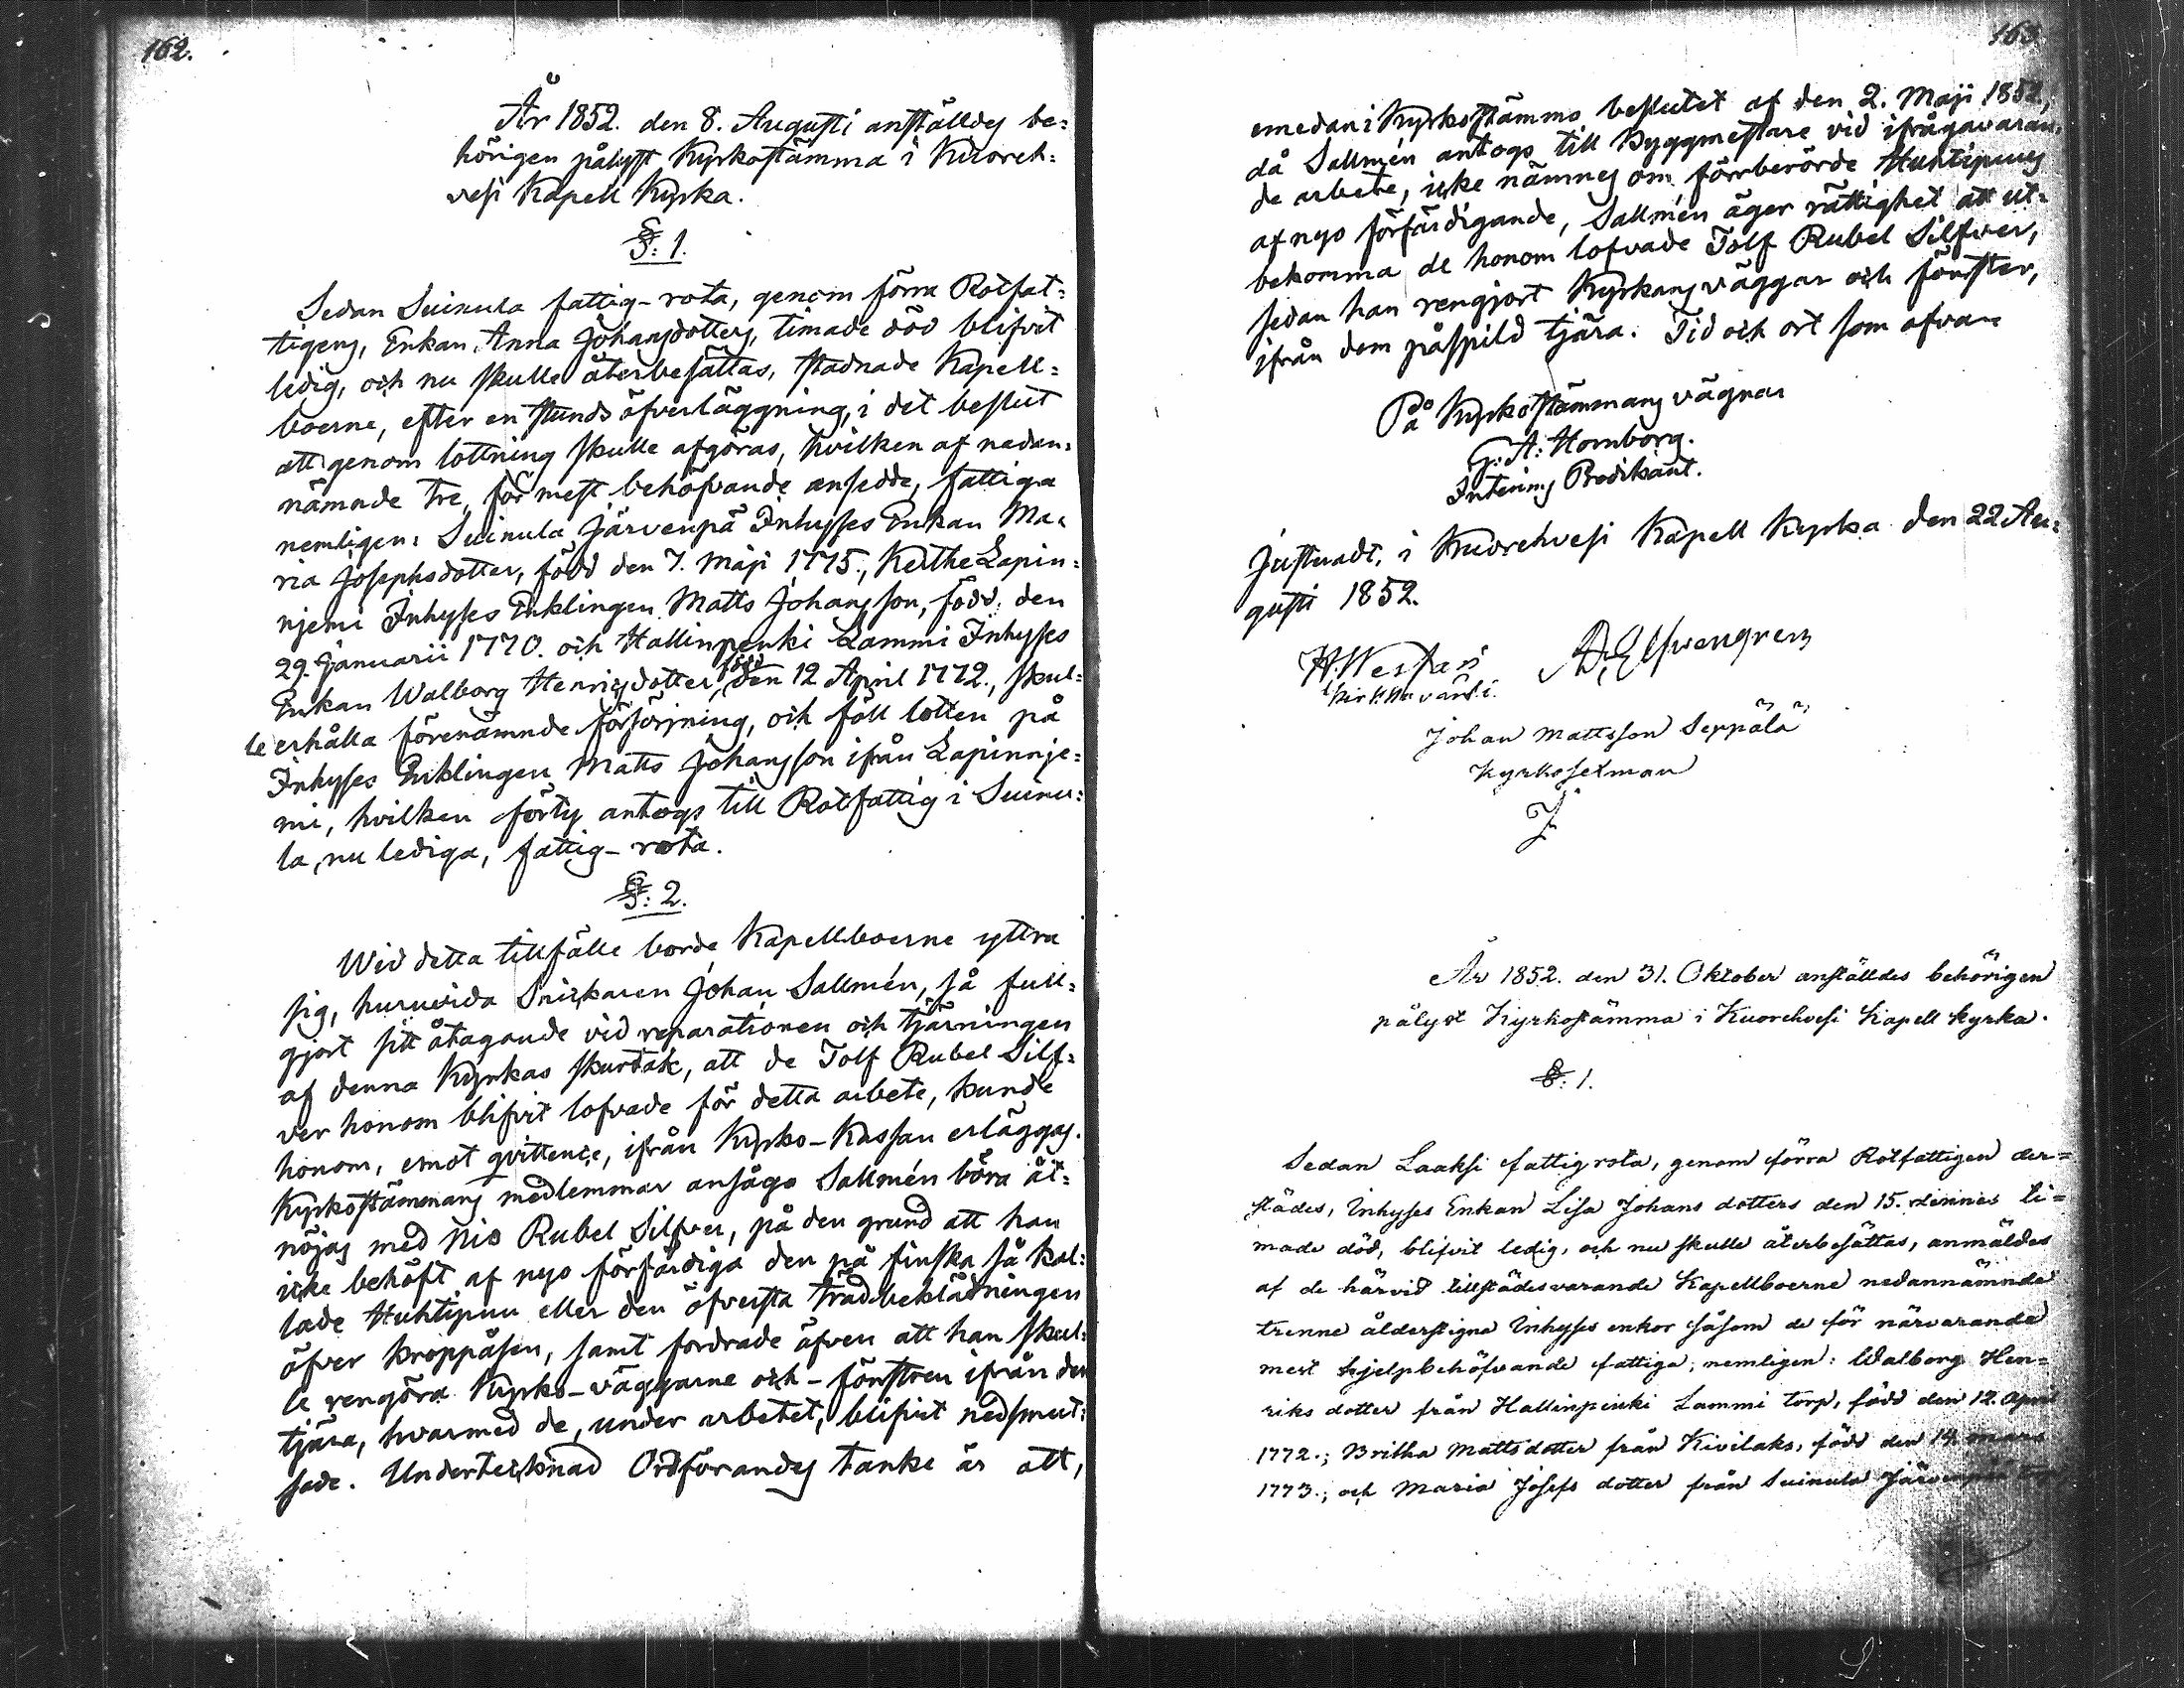 162.
År 1852. den 8. Augusti anställdes be=
hörigen pålyst Kyrkostämma i Kuoreh=
vesi Kapell Kyrka.
§: 1.
Sedan Suinula fattig-rota, genom förra Rotfat=
tigens, Enkan Anna Johansdotters, timade död blifvit
ledig, och nu skulle återbesättas, stadnade Kapell=
boerne, efter en stunds öfverläggning, i det beslut
att genom lottning skulle afgöras, hvilken af nedan=
nämnde tre, för mest behöfvande ansedde, fattiga
nemligen: Suinula Järvenpä Inhyses Enkan Ma=
ria Josephsdotter, född den 7. Maji 1775., Keithe Lapin=
njemi Inhyses Enklingen Matts Johansson, född. den
29. Januarii 1770. och Hallinpenki Lammi Inhyses
Enkan Walborg Henricsdotter, född den 12 April 1772., skul=
le erhålla förenämnde försörjning, och föll lotten på
Inhyses Enklingen Matts Johansson ifrån Lapinnje=
mi, hvilken förty antogs till Rotfattig i Suinu=
la, nu lediga, fattig-rota.
§: 2.
Wid detta tillfälle borde Kapellboerne yttra
sig, huruvida Snickaren Johan Sallmén, så full=
gjort sitt åtagande vid reparationen och tjärningen
af denna Kyrkas skurtak, att de Tolf Rubel Silf=
ver honom blifvit lofvade för detta arbete, kunde
honom, emot qvittence, ifrån Kyrko-Kassan erläggas.
Kyrkostämmans medlemmar ansågo Sallmén böra åt=
nöjas med Nio Rubel Silfver, på den grund att han
icke behöft af nyo förfärdiga den på finska så kal=
lade Huhtipuu eller den öfversta trädbeklädningen
öfver kroppåsen, samt fordrade äfven att han skul=
le rengöra Kyrko-väggarne och -fönstren ifrån den
tjära, hvarmed de, under arbetet, blifvit nedsmut=
sade. Undertecknad Ordförandes tanke är att,
163
emedan i Kyrkostämmo beslutet af den 2. Maji 1852.,
då Sallmén antogs till Byggmestare vid ifrågavaran=
de arbete, icke nämnes om förrberörde Huhtipuus
af nyo förfärdigande, Sallmén äger rättighet att ut=
bekomma de honom lofvade Tolf Rubel Silfver,
sedan han rengjort Kyrkans väggar och fönster,
ifrån dem påspild tjära. Tid och ort som ofvan
På Kyrkostämmans vägnar
G: A: Hornborg.
Interims Predikant.
Justeradt, i Kuorehvesi Kapell Kyrka den 22 Au=
gusti 1852.
Johan Mattsson Seppälä
Kyrkosexman
År 1852. den 31. Oktober anställdes behörigen
pålyst Kyrkostämma i Kuorehvesi Kapell kyrka.
§: 1.
Sedan Laaksi fattigrota, genom förra Rotfattigen der=
städes, Inhyses Enkan Lisa Johans dotters den 15. dennes ti=
made död, blifvit ledig, och nu skulle återbesättas, anmäldes
af de härvid tillstädesvarande Kapellboerne nedannämnde
trenne ålderstigna Inhyses enkor såsom de för närvarande
mest hjelpbehöfvande fattiga; nemligen: Walborg Hen=
riks dotter från Hallinpenki Lammi torp, född den 12. April
1772.; Britha Mattsdotter från Kivilaks, född den 14. mars
1773.; och Maria Josefs dotter från Suinula Järvenpää